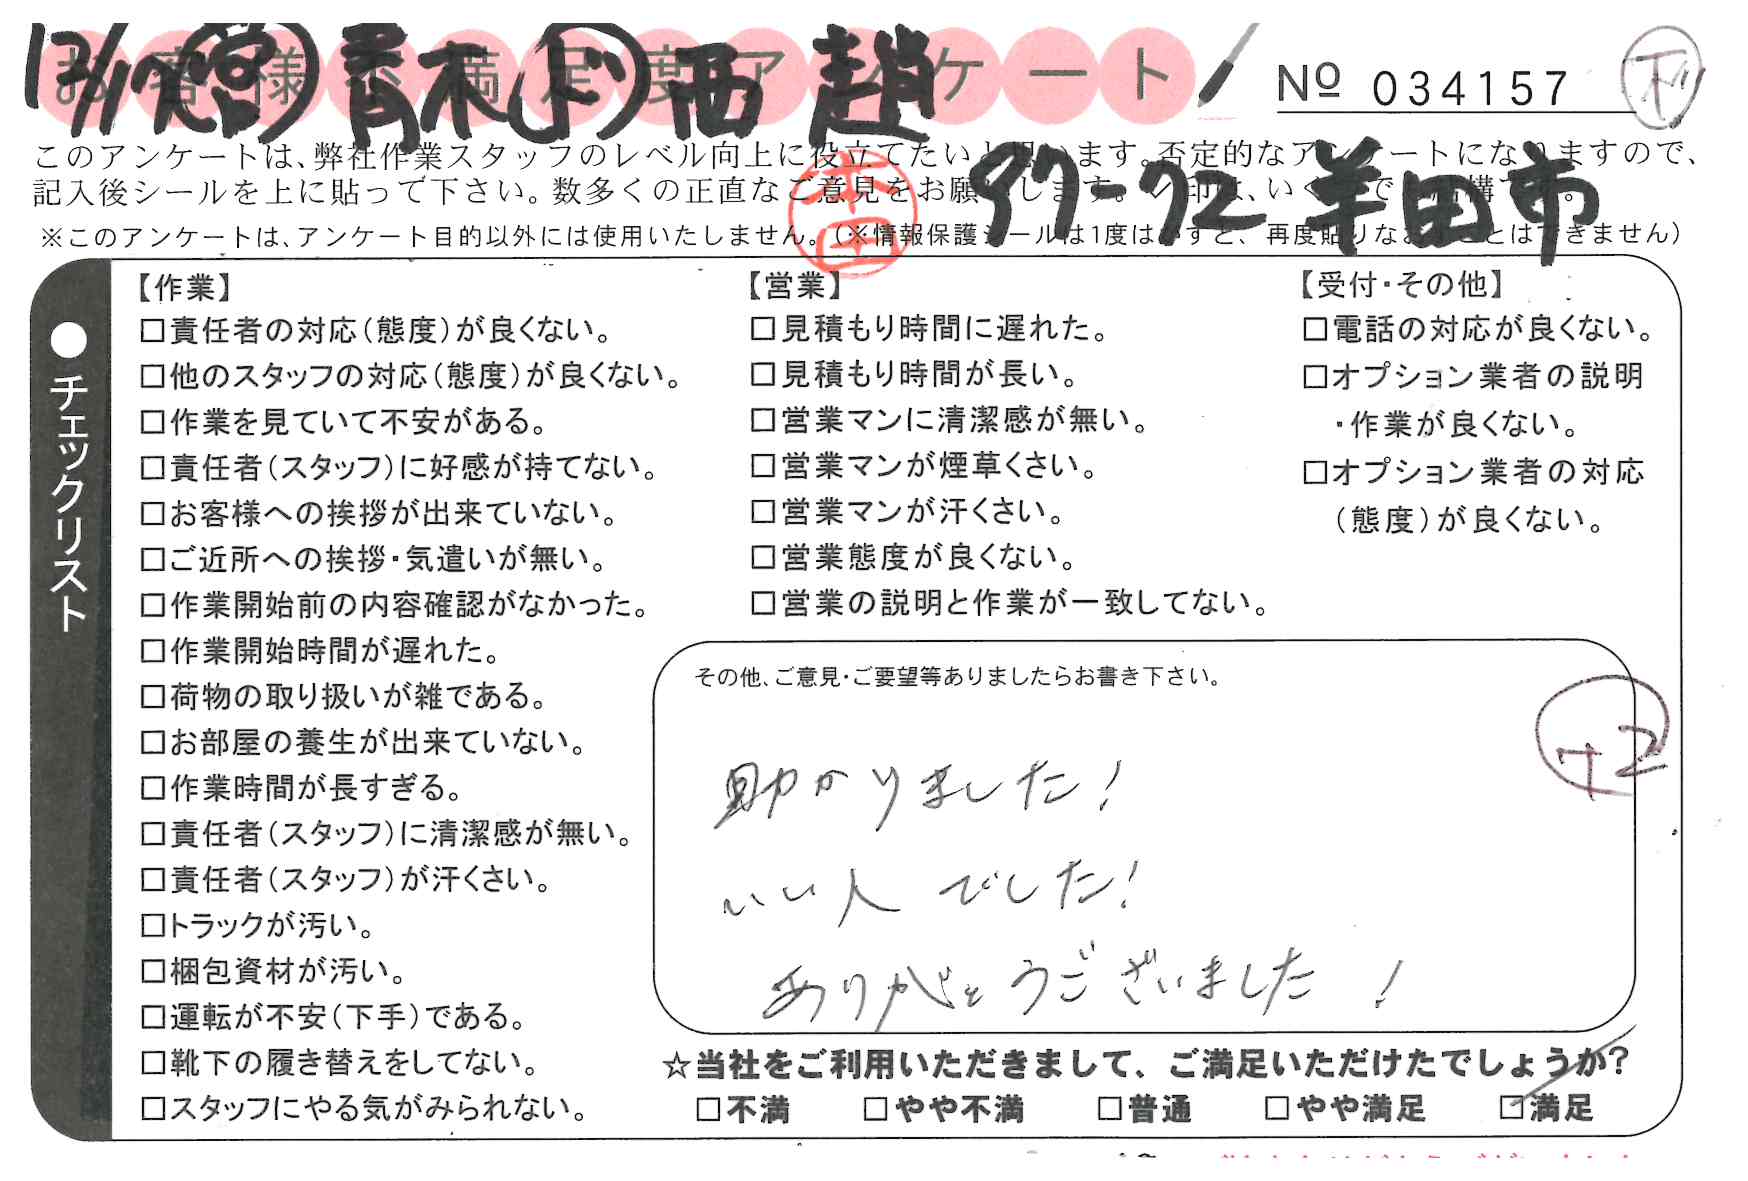 12/17 営 青木 ド 西 趙
お客様不満足度アンケート
№ 034157
このアンケートは、弊社作業スタッフのレベル向上に役立てたいと思います。否定的なアンケートになりますので、
記入後シールを上に貼って下さい。数多くの正直なご意見をお願いします。✓印は、いくつでも結構です。
97-72 半田市
本田
※このアンケートは、アンケート目的以外には使用いたしません。(※情報保護シールは1度はがすと、再度貼りなおすことはできません)
●チェックリスト
【作業】
□責任者の対応(態度)が良くない。
□他のスタッフの対応(態度)が良くない。
□作業を見ていて不安がある。
□責任者(スタッフ)に好感が持てない。
□お客様への挨拶が出来ていない。
□ご近所への挨拶・気遣いが無い。
□作業開始前の内容確認がなかった。
□作業開始時間が遅れた。
□荷物の取り扱いが雑である。
□お部屋の養生が出来ていない。
□作業時間が長すぎる。
□責任者(スタッフ)に清潔感が無い。
□責任者(スタッフ)が汗くさい。
□トラックが汚い。
□梱包資材が汚い。
□運転が不安(下手)である。
□靴下の履き替えをしてない。
□スタッフにやる気がみられない。
【営業】
□見積もり時間に遅れた。
□見積もり時間が長い。
□営業マンに清潔感が無い。
□営業マンが煙草くさい。
□営業マンが汗くさい。
□営業態度が良くない。
□営業の説明と作業が一致してない。
【受付・その他】
□電話の対応が良くない。
□オプション業者の説明
・作業が良くない。
□オプション業者の対応
(態度)が良くない。
その他、ご意見・ご要望等ありましたらお書き下さい。
+2
助かりました!
いい人でした!
ありがとうございました!
☆当社をご利用いただきまして、ご満足いただけたでしょうか?
□不満 □やや不満 □普通 □やや満足 ☑満足